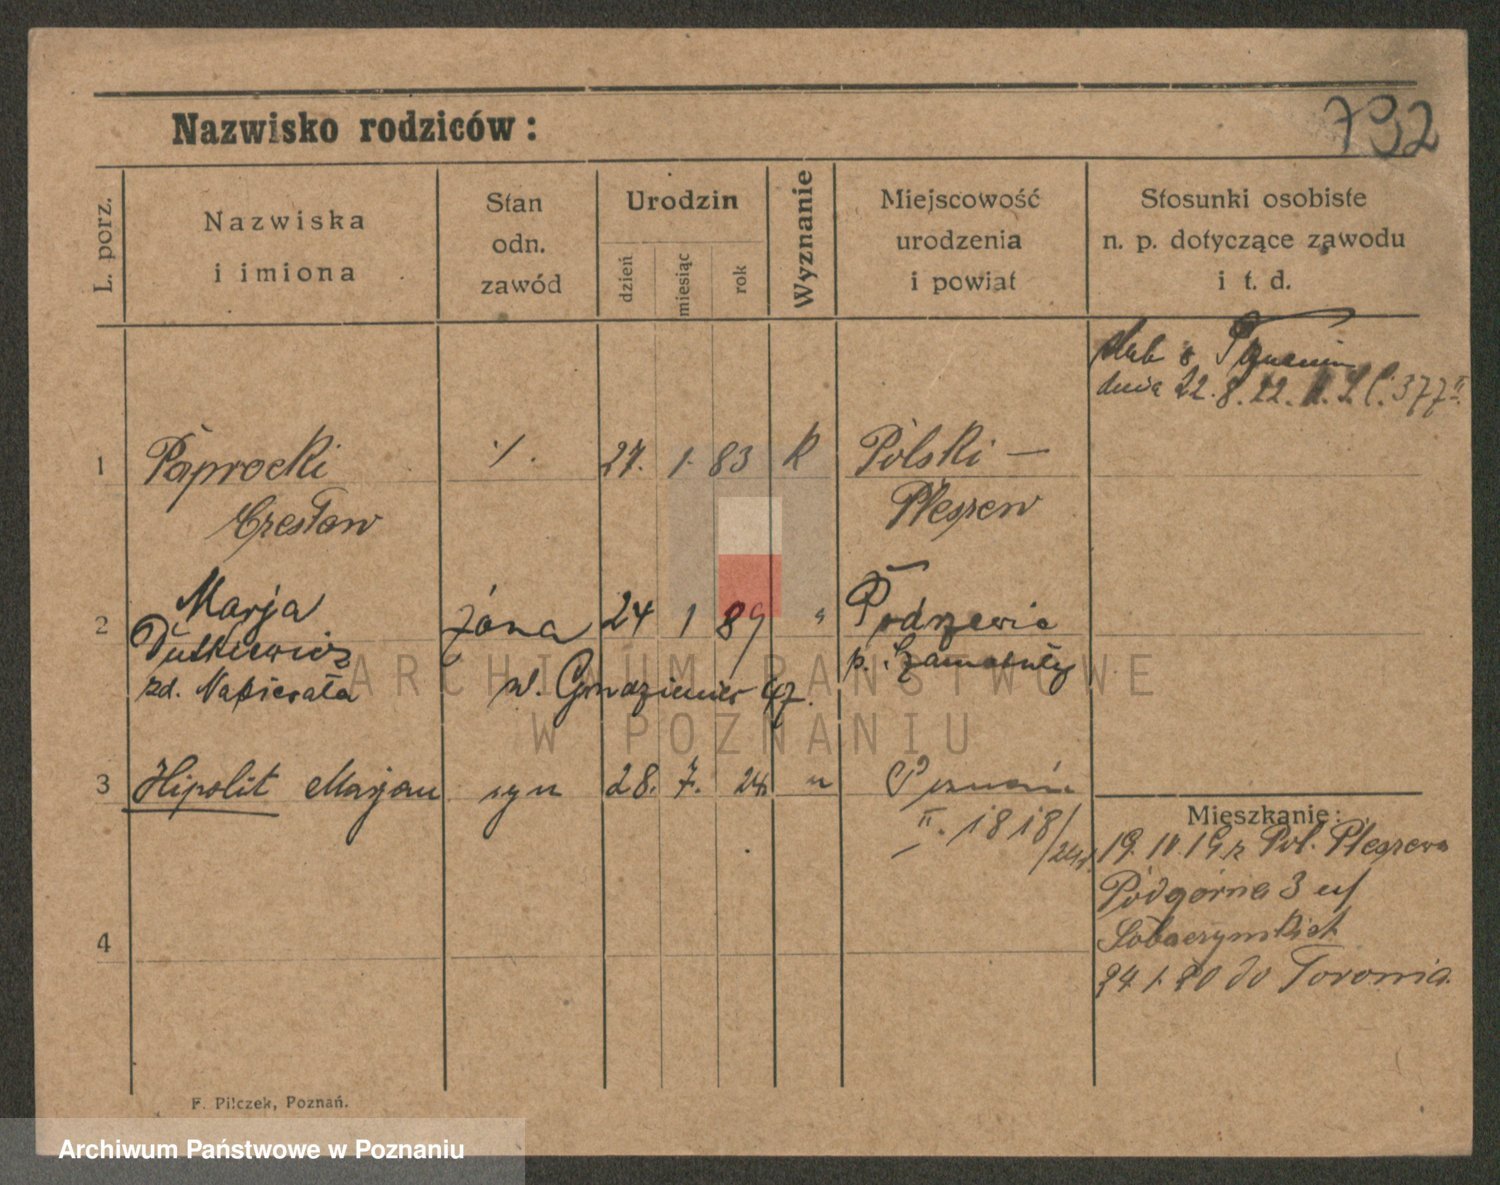 Nazwisko rodziców:
732
L. porz.
Nazwiska
i imiona
Stan
odn.
zawód
Urodzin
dzień
miesiąc
rok
Wyznanie
Miejscowość
urodzenia
i powiat
Stosunki osobiste
n. p. dotyczące zawodu
i t. d.
dnia 22. 8. 22. 377 II.
1 Paprocki ·/. 27. 1. 83 k Polski —
Czesław Pleszew
2 Marja żona 24 1 89 " Podrzewie
Dutkiewicz p. Szamotuły
zd. Napierała
3 Hipolit Marjan syn 28. 7. 24. " Poznań
II. 1818/24
Mieszkanie:
19. 19 r Pol. Pleszewa
Podgórna 3
24. 1. 20 do Torunia.
4
F. Pilczek, Poznań.
ARCHIWUM PAŃSTWOWE
W POZNANIU
Archiwum Państwowe w Poznaniu